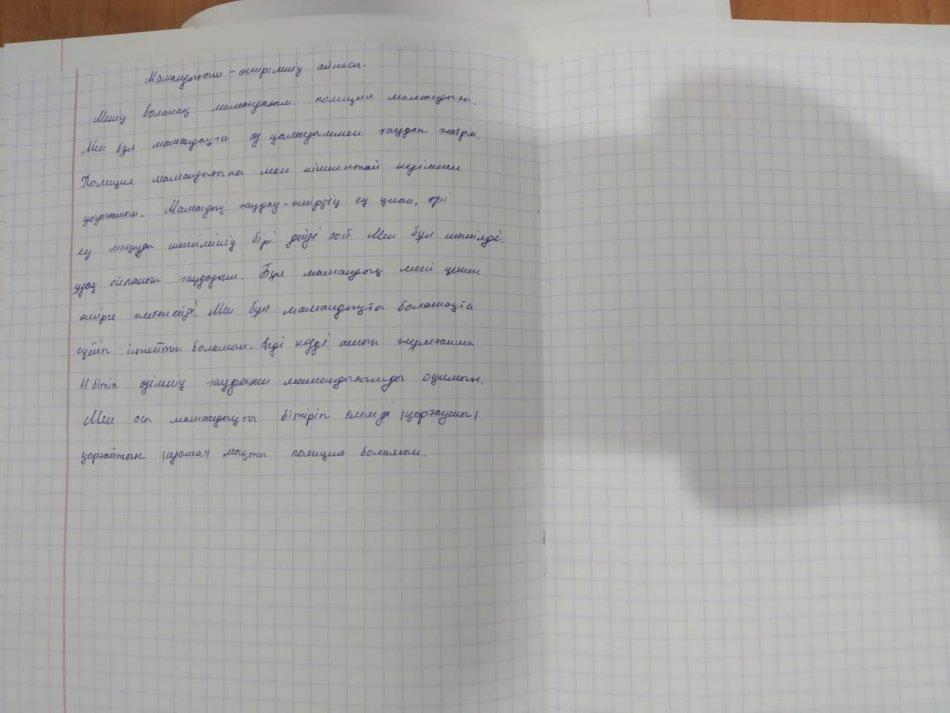 Мамандығым - өмірімнің айнасы.
Менің болашақ мамандығым полиция мамандығы.
Мен бұл мамандықты өз қалауыммен таңдап жатырм.
Полиция мамандығына мен кішкентай кезімнен
қызықтым. Мамандық таңдау - өмірдің ең қиын, әрі
ең маңызды шешімінің бірі дейді ғой. Мен бұл шешімді
ұзақ ойланып таңдадым. Бұл мамандық мені үлкен
өмірге жетелейді. Мен бұл мамандықта болашақта
сүйіп істейтін боламын. Енді кезді
11 бітіп өзімнің таңдаған мамандығымды оқимын.
Мен осы мамандықты бітіріп елімді |қорғаушы|
қорғайтын |адама| мықты полиция боламын.